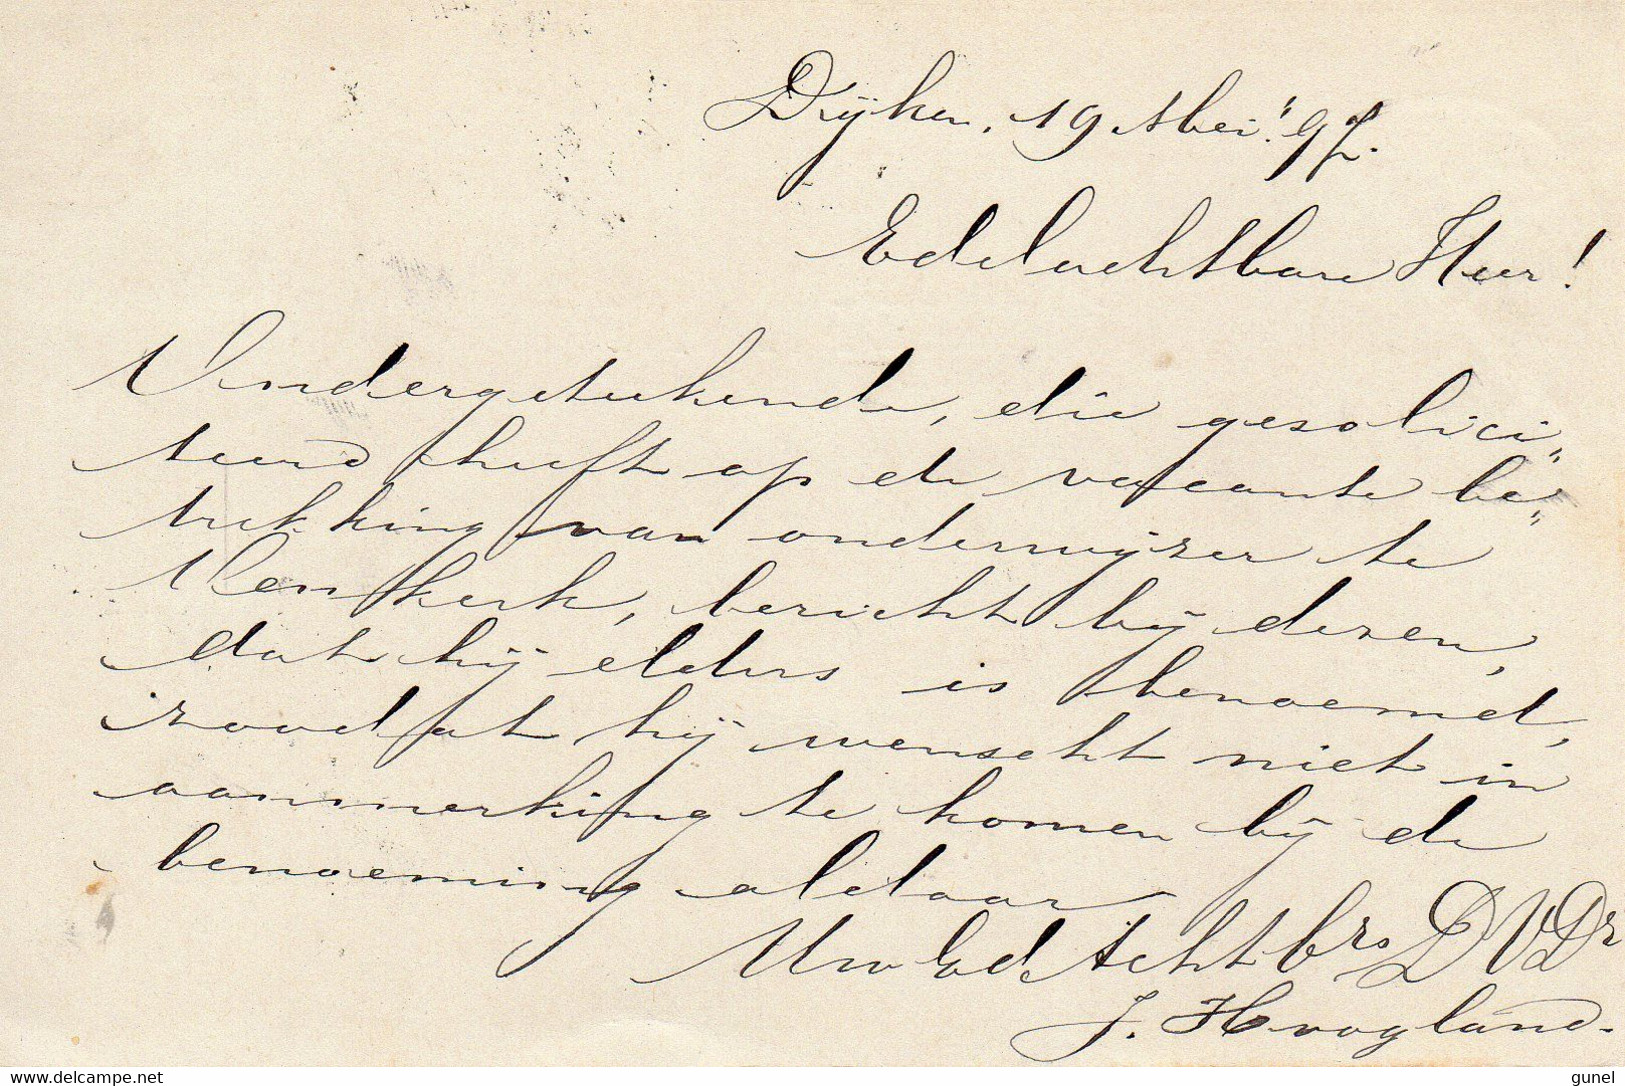 Dijken, 19 Mei "97.
Edelachtbare Heer!
Ondergeteekende, die gesolici„
teerd heeft op de vacante be„
trekking van onderwijzer te
Venkerk, bericht bij dezen,
dat hij elders is benoemd,
zoodat hij wenscht niet in
aanmerking te komen bij de
benoeming aldaar
Uw Ed Achtbrs DVDr
J. Hoogland.
www.delcampe.net
gunel